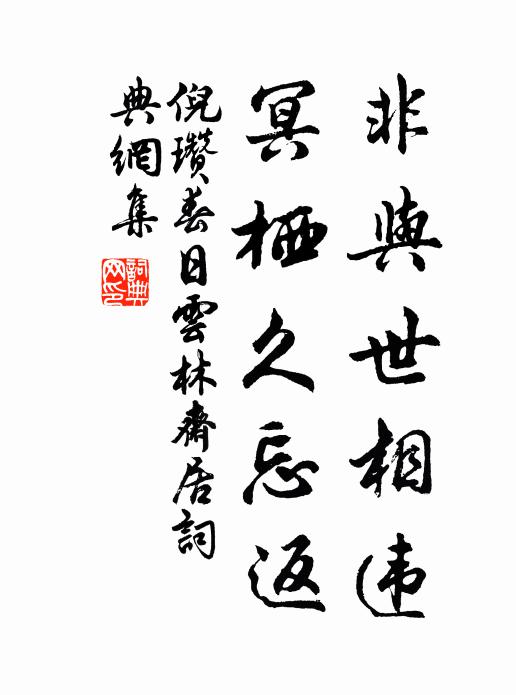 非與世相违
冥栖久忘返
倪瓚春日雲林齋居詞
典網集
詞典網印